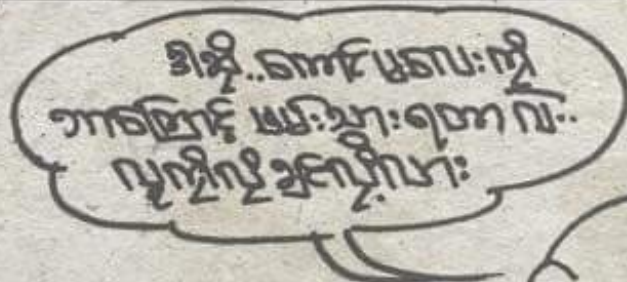 ဒါဆို..ကောင်မလေးကို
ဘာကြောင့် ဖမ်းသွားရတာ လဲ..
လူကိုလို ချင်လို့လား